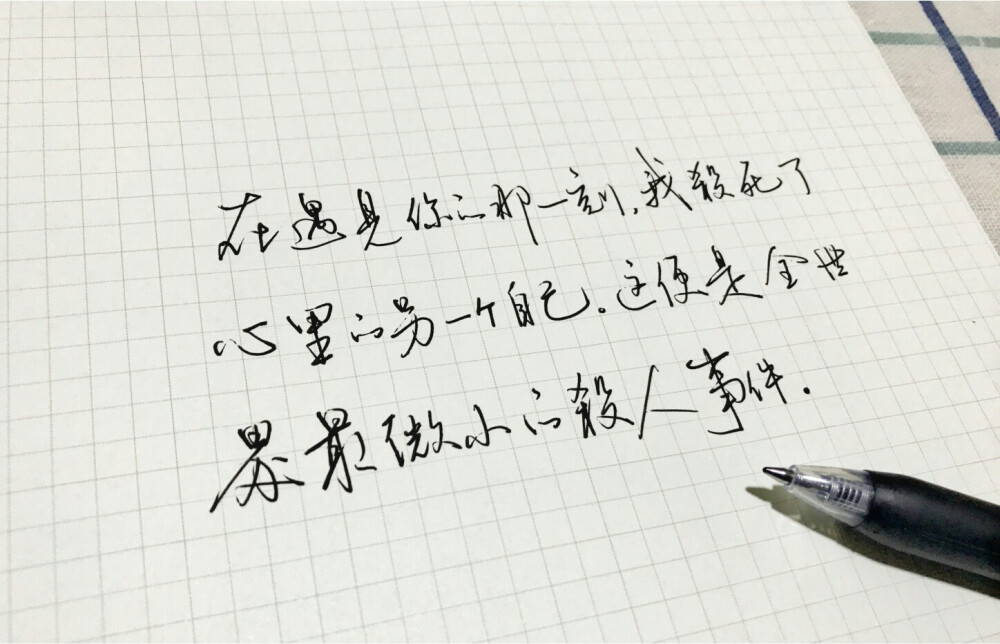 在遇见你的那一刻,我殺死了
心里的另一个自己.这便是全世
界最微小的殺人事件.